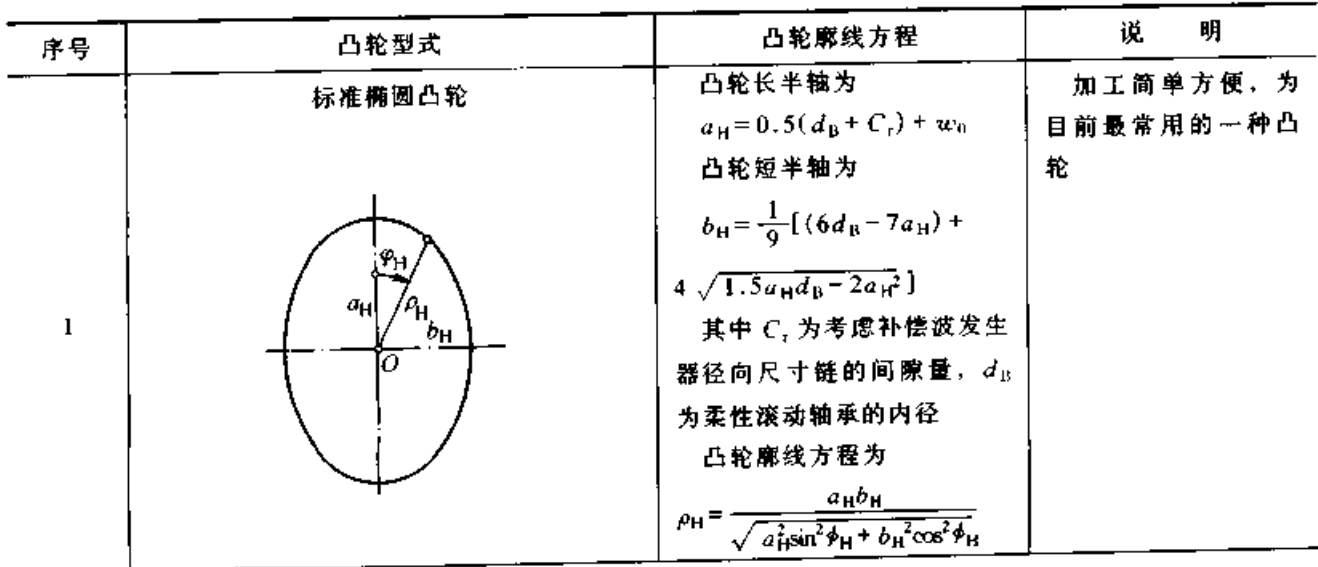 序号
凸轮型式
凸轮廓线方程
说 明
1
标准椭圆凸轮
φH
aH
ρH
bH
O
凸轮长半轴为
aH=0.5(dB+Cr)+w0
凸轮短半轴为
bH=1/9[(6dB-7aH)+
4√(1.5aHdB-2aH²)]
其中 Cr 为考虑补偿波发生
器径向尺寸链的间隙量，dB
为柔性滚动轴承的内径
凸轮廓线方程为
ρH=aHbH/√(aH²sin²ϕH+bH²cos²ϕH)
加工简单方便，为
目前最常用的一种凸
轮